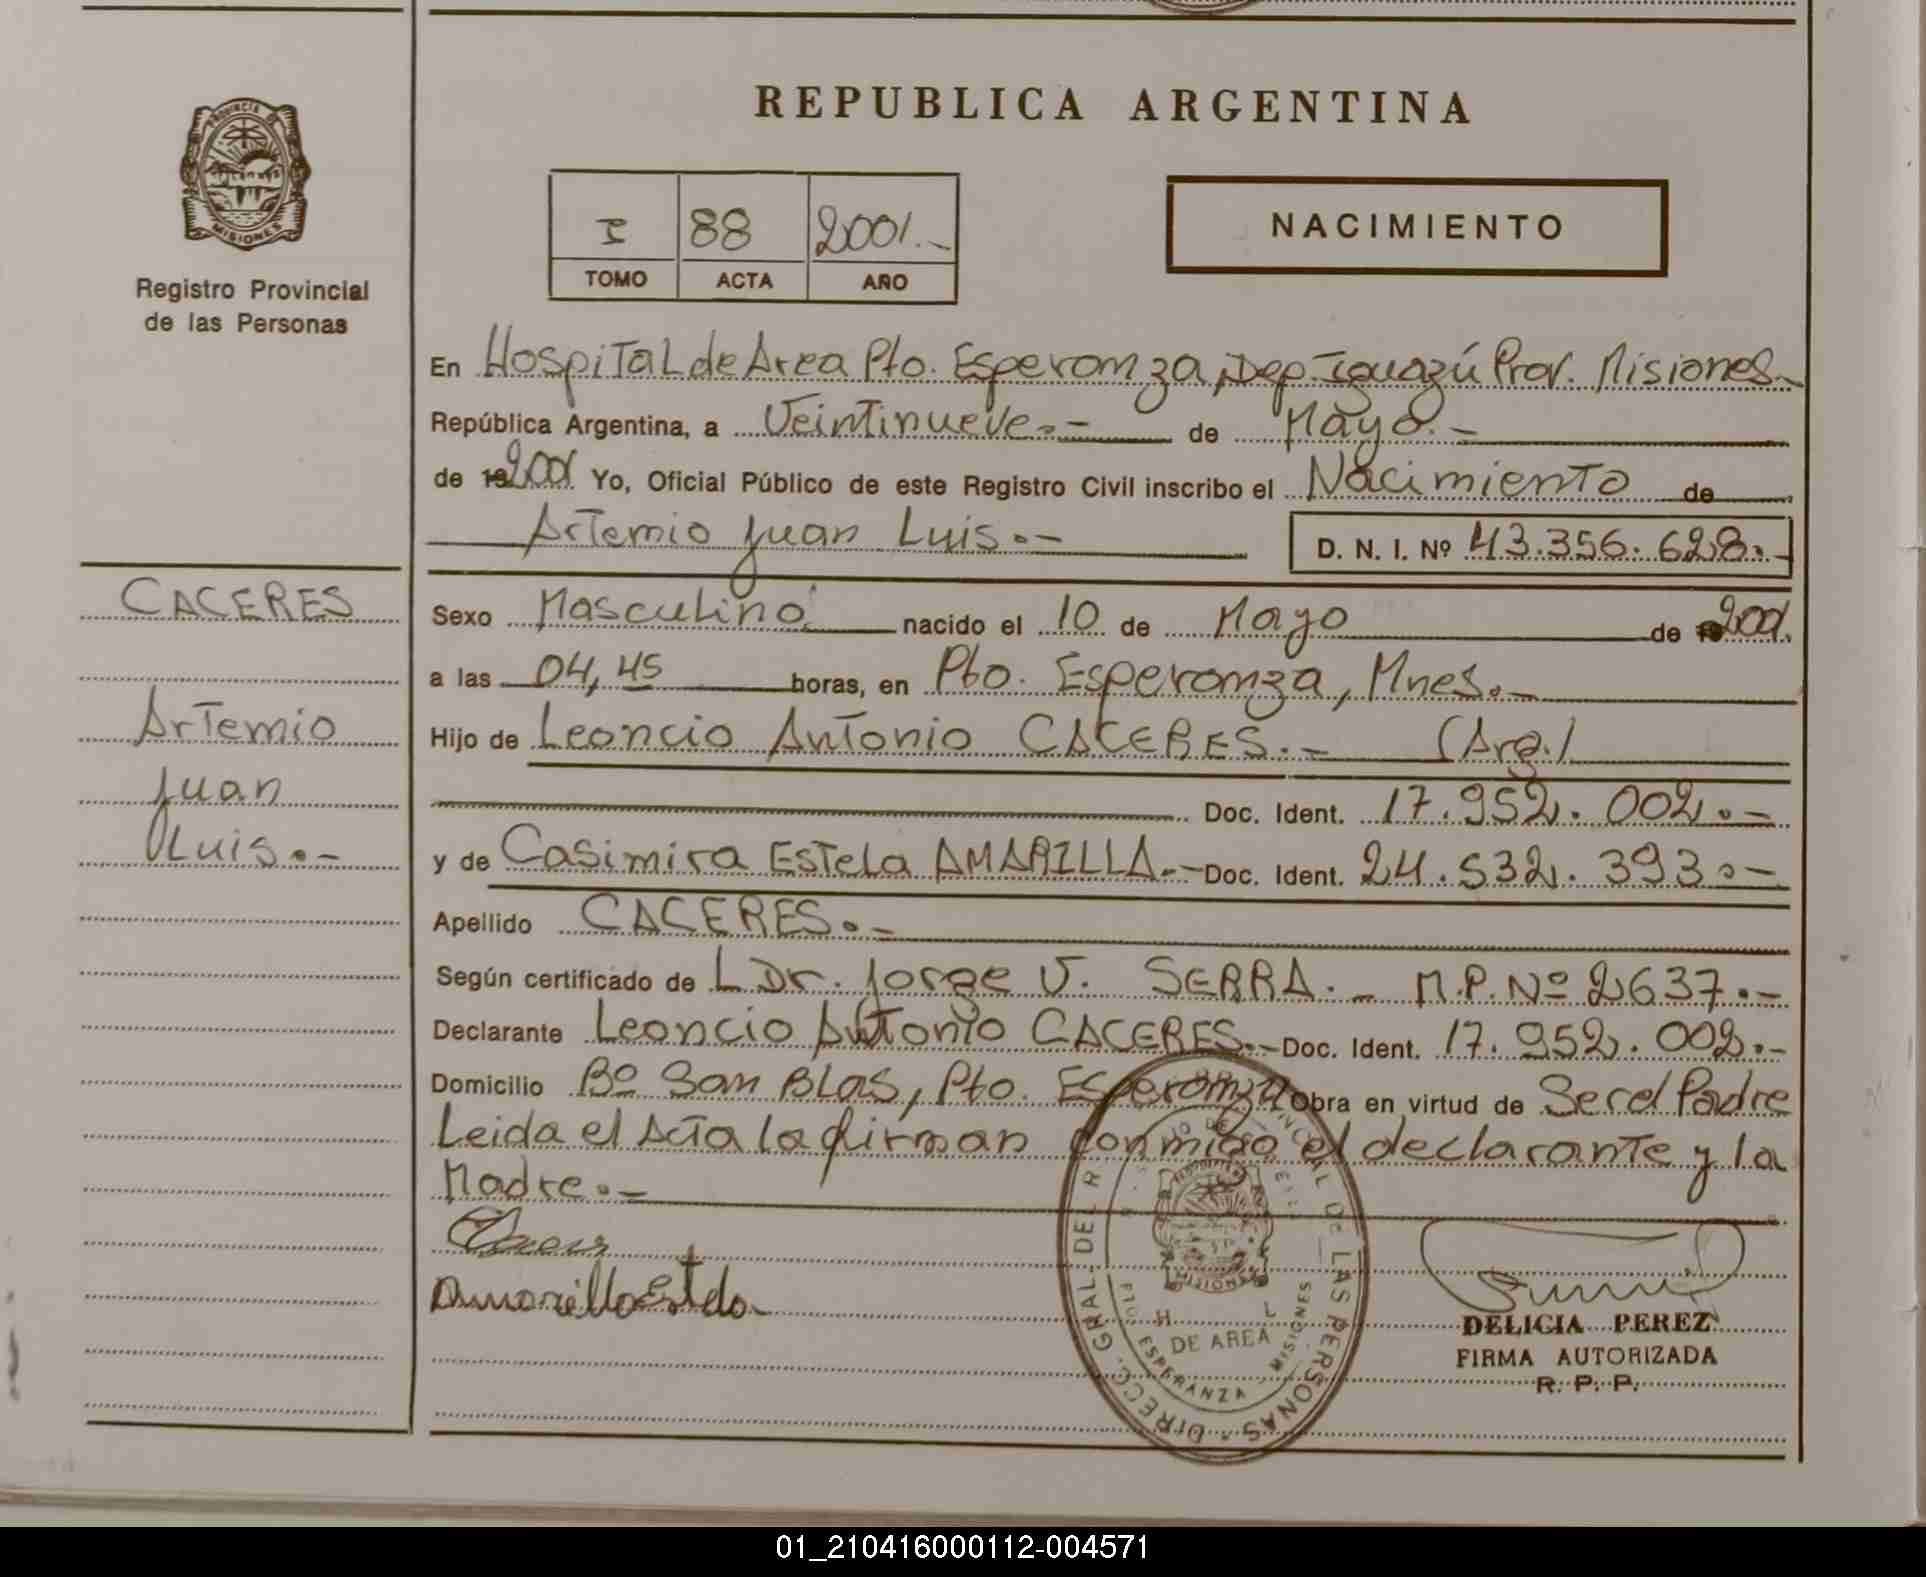 REPUBLICA ARGENTINA
PROVINCIA DE
MISIONES
Registro Provincial
de las Personas
I 88 2001.-
TOMO ACTA AÑO
NACIMIENTO
En Hospital de Area Pto. Esperanza, Dep. Iguazú Prov. Misiones.-
República Argentina, a Veintinueve.- de Mayo.-
de 2001 Yo, Oficial Público de este Registro Civil inscribo el Nacimiento de
Artemio Juan Luis.- D. N. I. Nº 43.356.628.-
CACERES
Artemio
Juan
Luis.-
Sexo Masculino nacido el 10 de Mayo de 2001.
a las 04,45 horas, en Pto. Esperanza, Mnes.-
Hijo de Leoncio Antonio CACERES.- (Arg.)
Doc. Ident. 17.952.002.-
y de Casimira Estela AMARILLA.- Doc. Ident. 24.532.393.-
Apellido CACERES.-
Según certificado de L Dr. Jorge V. SERRA.- M.P. Nº 2637.-
Declarante Leoncio Antonio CACERES.- Doc. Ident. 17.952.002.-
Domicilio Bº San Blas, Pto. Esperanza Obra en virtud de Ser el Padre
Leida el Acta la firman conmigo el declarante y la
Madre.-
Amarilla Estela
DIRECC. GRAL. DEL R DE LAS PERSONAS
DE AREA
ESPERANZA MISIONES
DELICIA PEREZ
FIRMA AUTORIZADA
R. P. P.
01_210416000112-004571